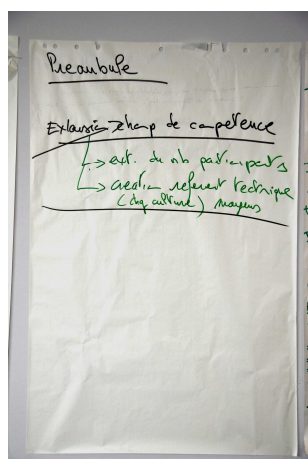 Preambule
Extension champ de compétence
→ ext. du nb participants
→ creation referent technique
(chq culture) moyens